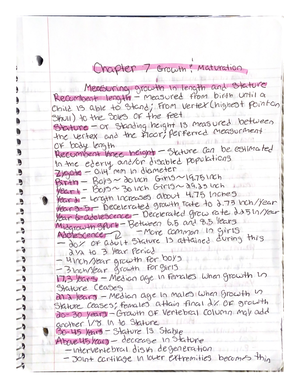 Chapter 7 Growth & Maturation
Measuring growth in length and Stature
Recumbent length - Measured from birth until a
Child is able to Stand; from Vertex (highest point on
Skull) to the Soles of the feet
Stature - or Standing height is measured between
the vertex and the floor; perferred measurment
of body length
Recumbent knee height - Stature can be estimated
in the ederly and/or disabled populations
Zygote - 0.14 mm in diameter
Birth - Boys ~ 20 inch Girls ~ 19.75 inch
Years - Boys ~ 30 inch Girls ~ 29.25 inch
Year 2 - Length increases about 4.75 inches
Year 3-5 - Decelerated growth rate to 2.75 inch/Year
Year 6-adolescence - Decelerated grow rate 2.25 in/Year
Midgrowth Spurt - Between 6.5 and 8.5 Years
Adolescence - More common in girls
- 20% of adult Stature is attained during this
2 1/2 to 3 Year Period
- 4 inch/Year growth for boys
- 3 inch/Year growth for girls
17.3 Years - Median age in females when growth in
Stature Ceases
21.2 Years - Median age in males when growth in
Stature Ceases; females attain final 2% of growth
20-30 Years - Growth of Vertebral column may add
another 1/8 in to Stature
30-45 Years - Stature is Stable
Above 45 Years - decrease in Stature
- intervertebral disks degeneration
- Joint cartilage in lower extremities becomes thin